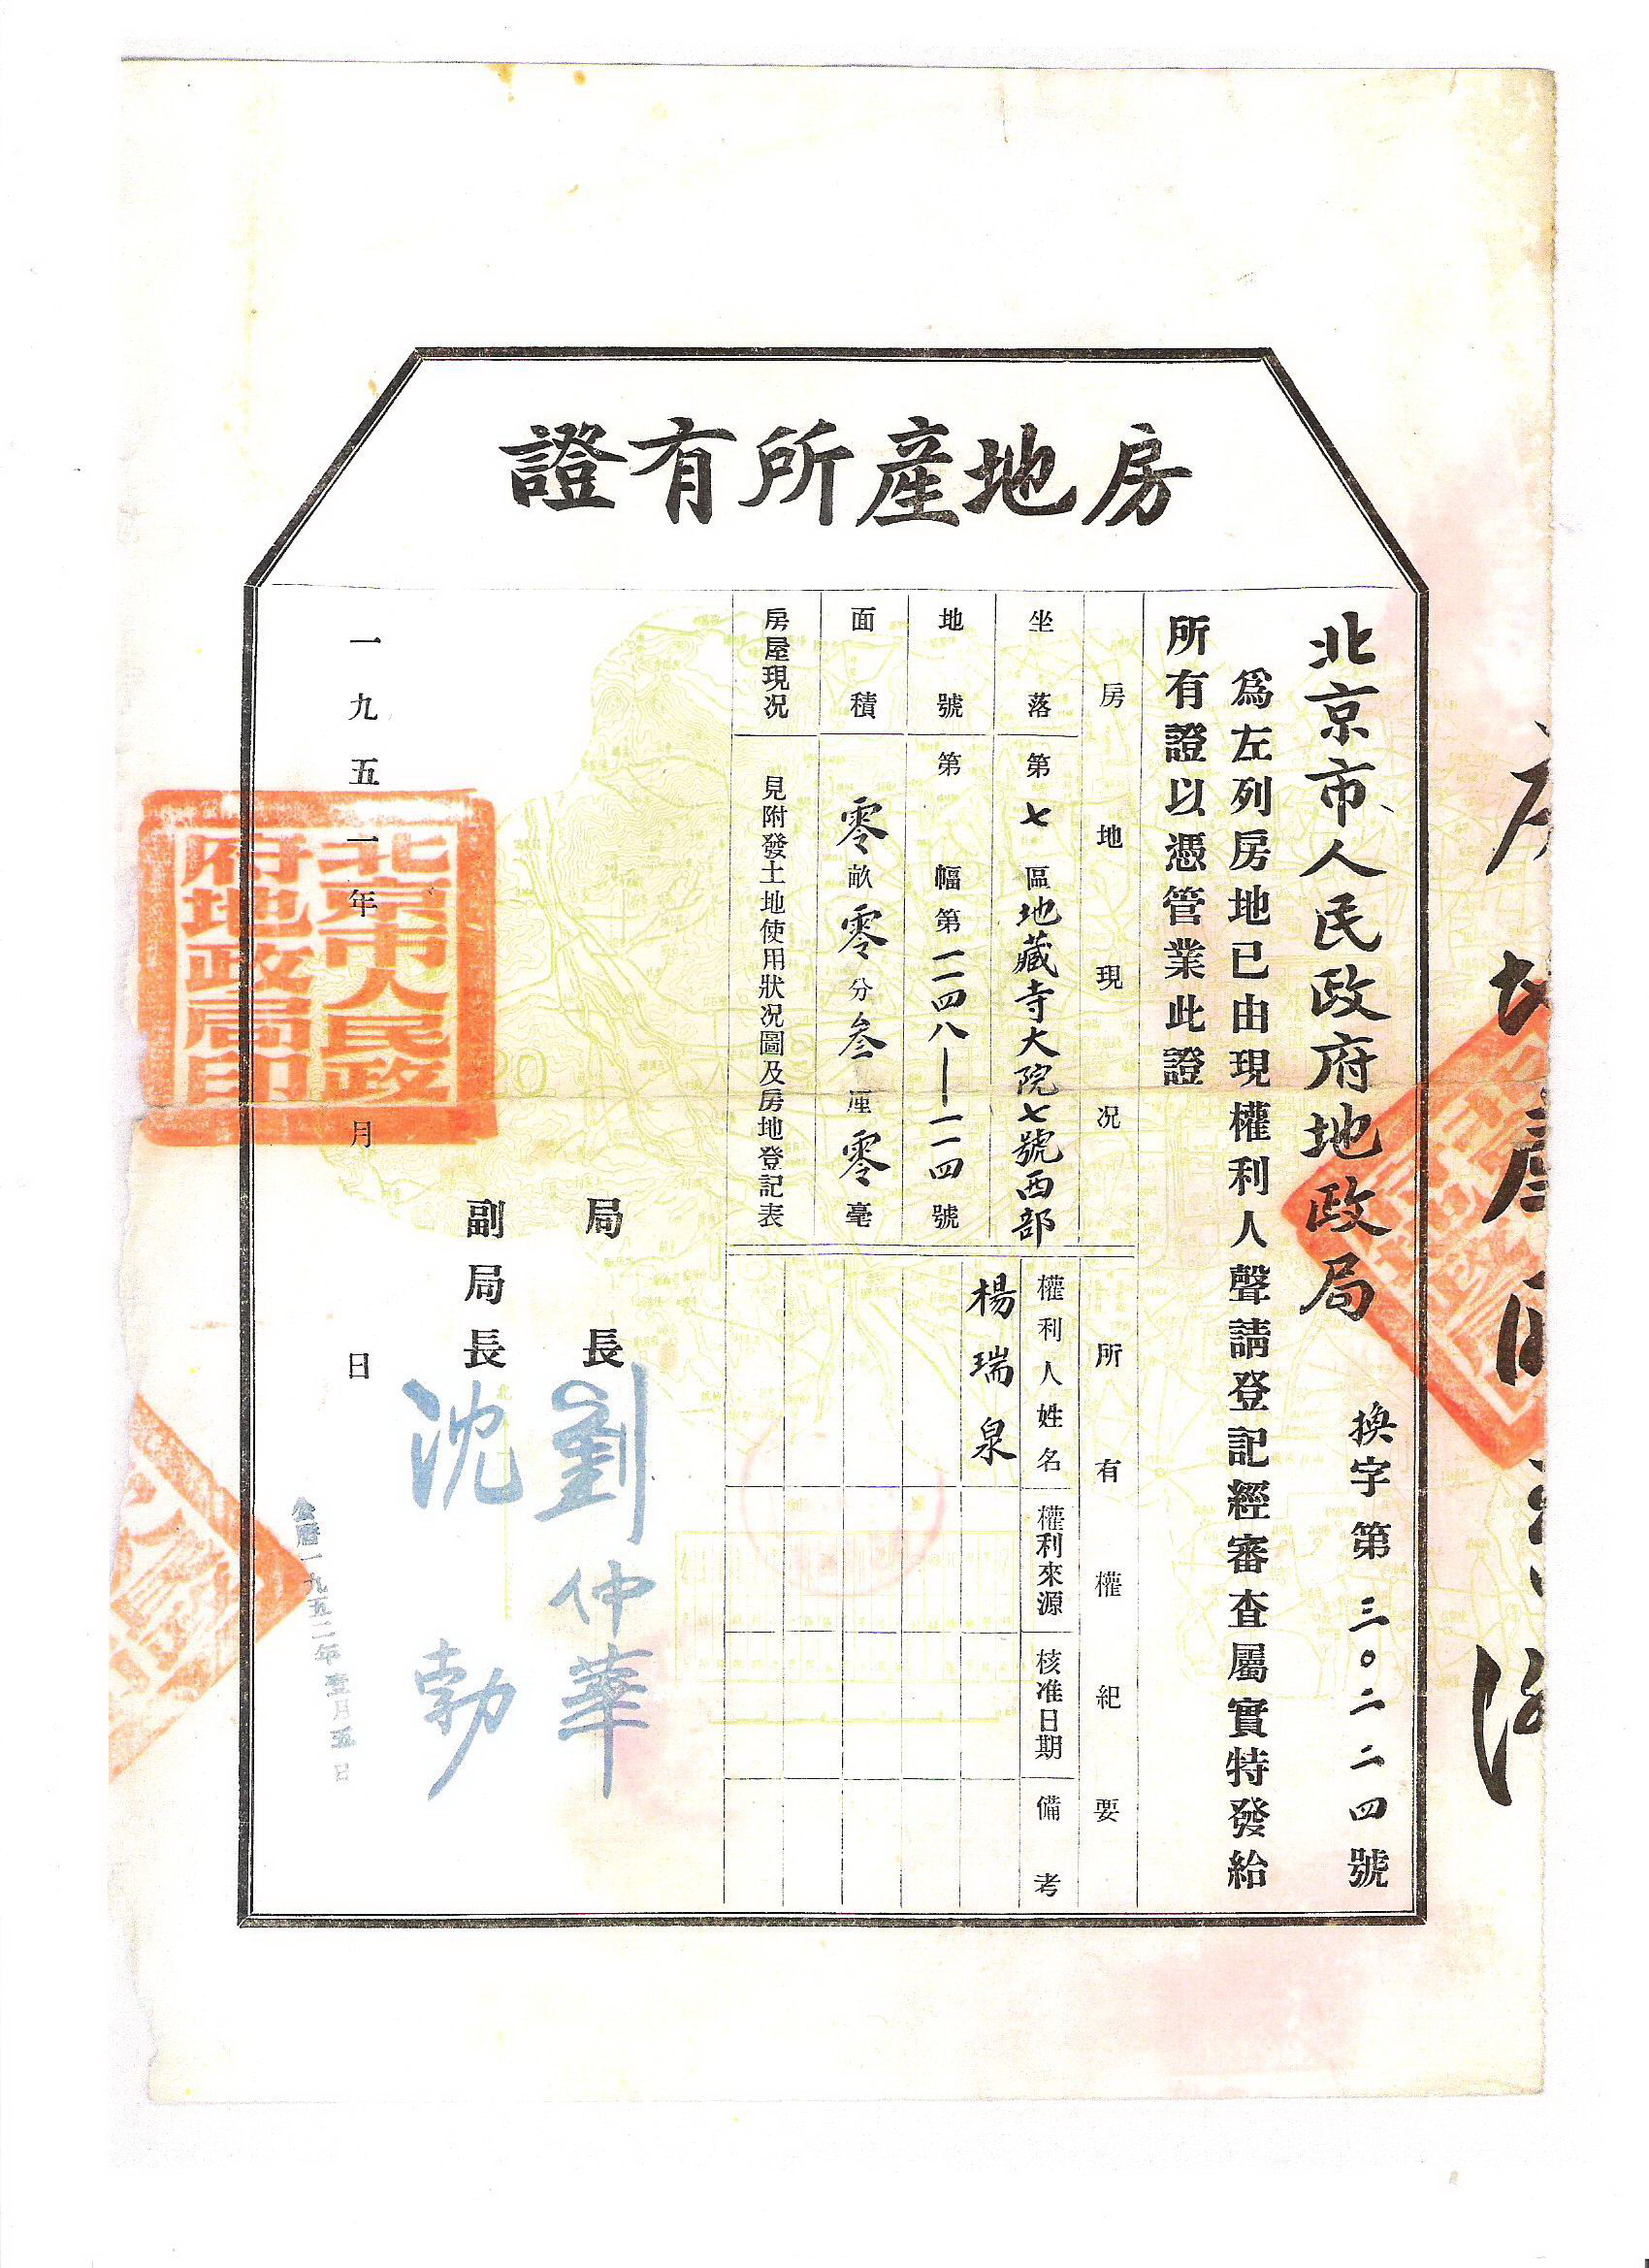 房地產所有證
北京市人民政府地政局
換字第三〇二二四號
爲左列房地已由現權利人聲請登記經審查屬實特發給
所有證以憑管業此證
房地現況
坐落 第七區地藏寺大院七號西部
地號 第 幅第一二四八—一一四號
面積 零畝零分叁厘零毫
房屋現況 見附發土地使用狀況圖及房地登記表
所有權紀要
權利人姓名 權利來源 核准日期 備考
楊瑞泉
局長 劉仲華
副局長 沈勃
一九五一年 月 日
公曆一九五二年壹月五日
北京市人民政
府地政局印